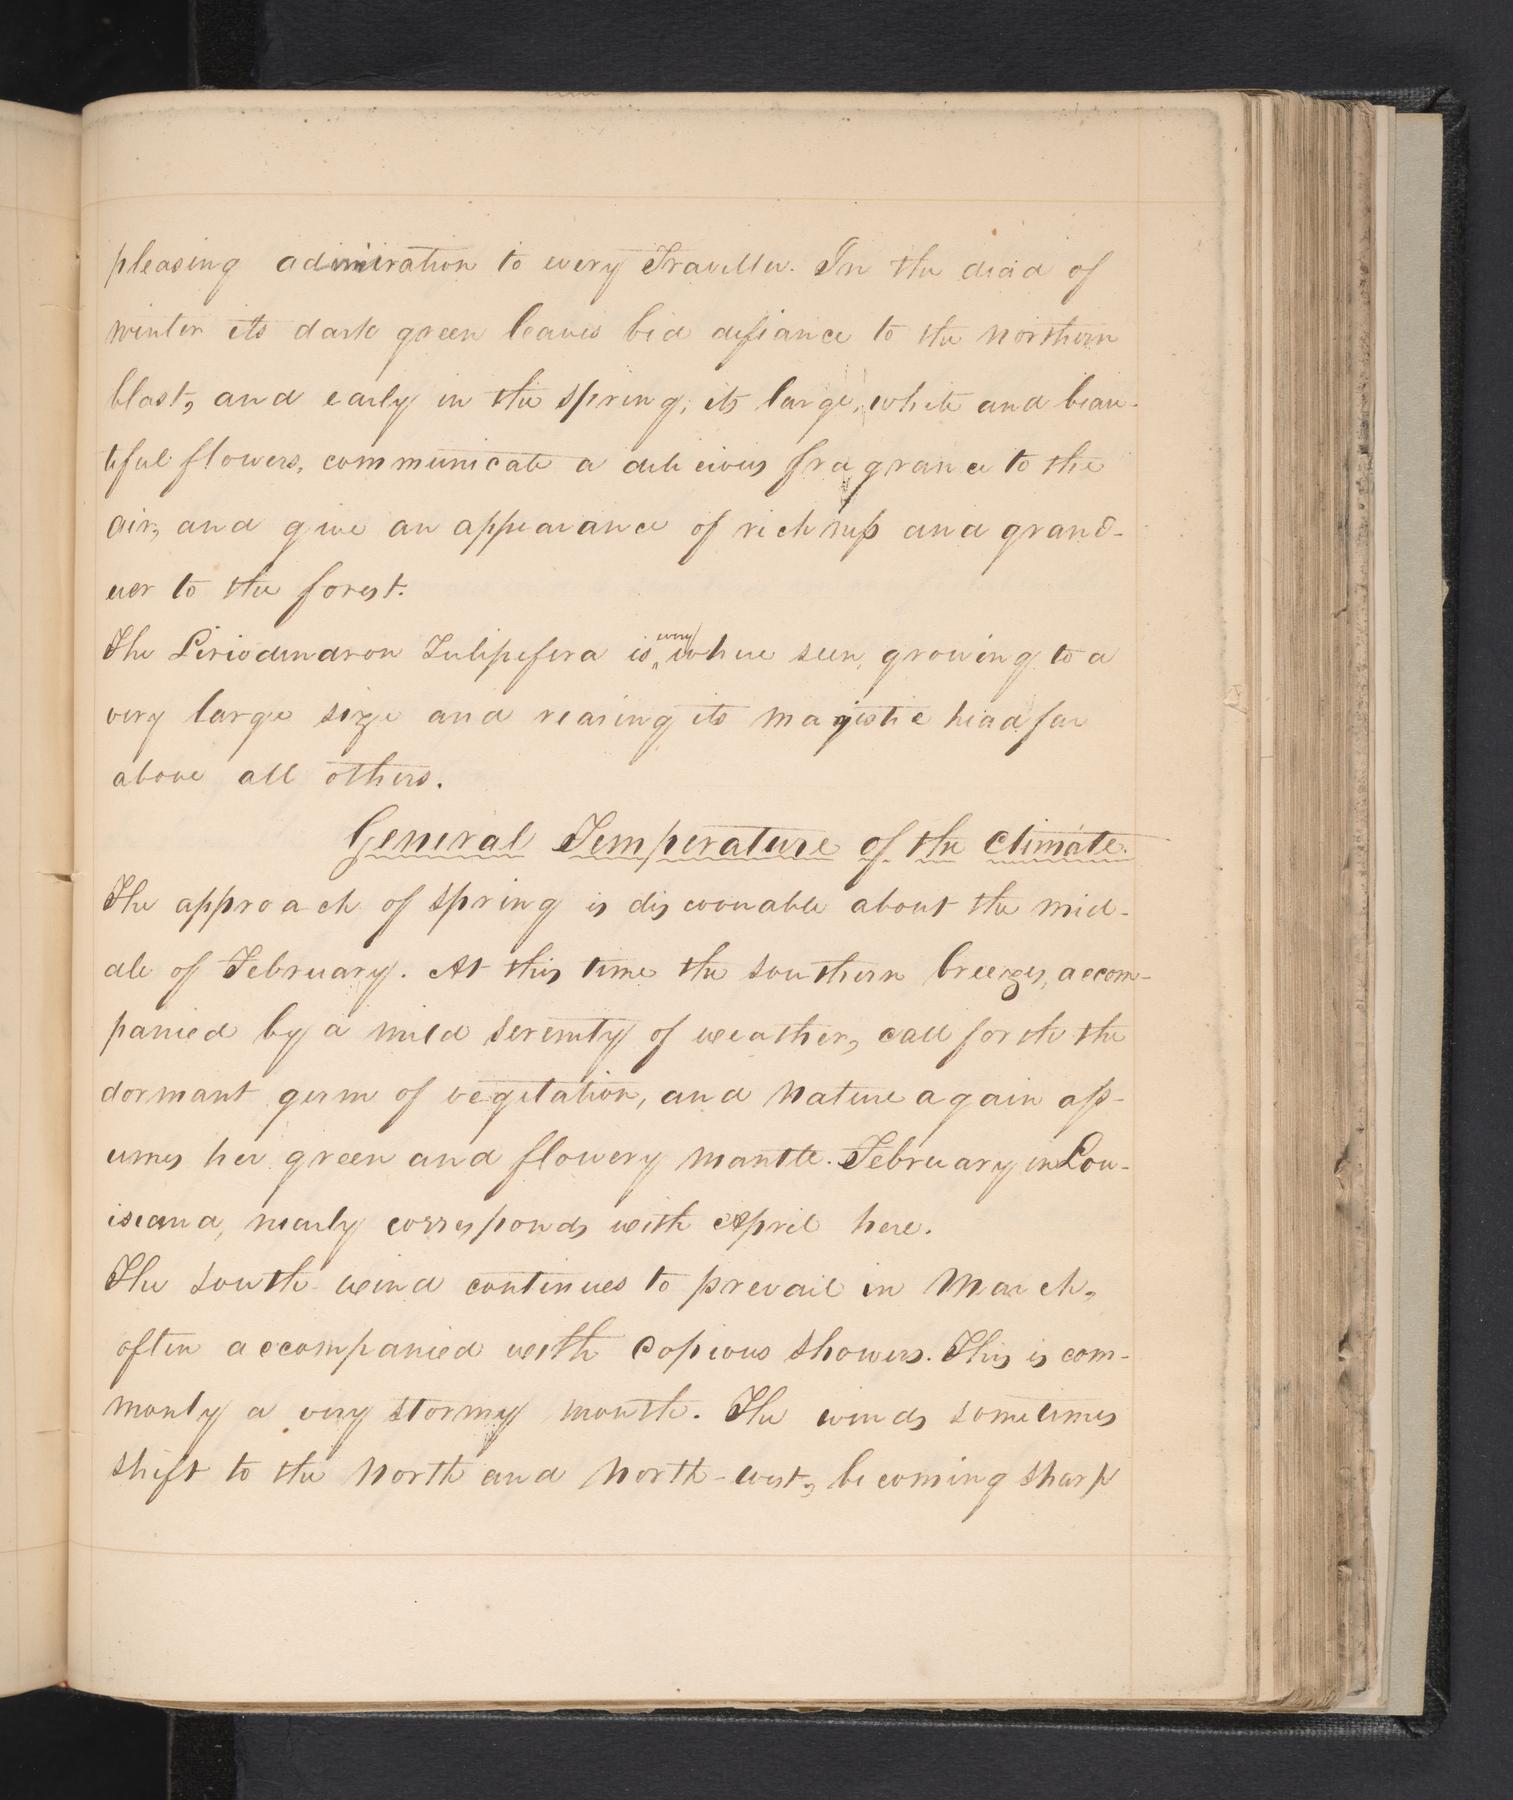 pleasing admiration to every Traveller. In the dead of
winter its dark green leaves bid defiance to the northern
blast, and early in the spring, its large, white and beau-
tiful flowers, communicate a delicious fragrance to the
air, and give an appearance of richness and grand-
uer to the forest.
The Liriodendron Tulipifera is every where seen, growing to a
very large size and rearing its magestic head far
above all others.
General Temperature of the Climate.
The approach of spring is discoverable about the mid-
dle of February. At this time the southern breezes, accom-
panied by a mild serenity of weather, call forth the
dormant germ of vegetation, and nature again ass-
umes her green and flowery mantle. February in Lou-
isiana, nearly corresponds with April here.
The south wind continues to prevail in March,
often accompanied with copious showers. This is com-
monly a very stormy month. The winds sometimes
shift to the north and north-west, becoming sharp